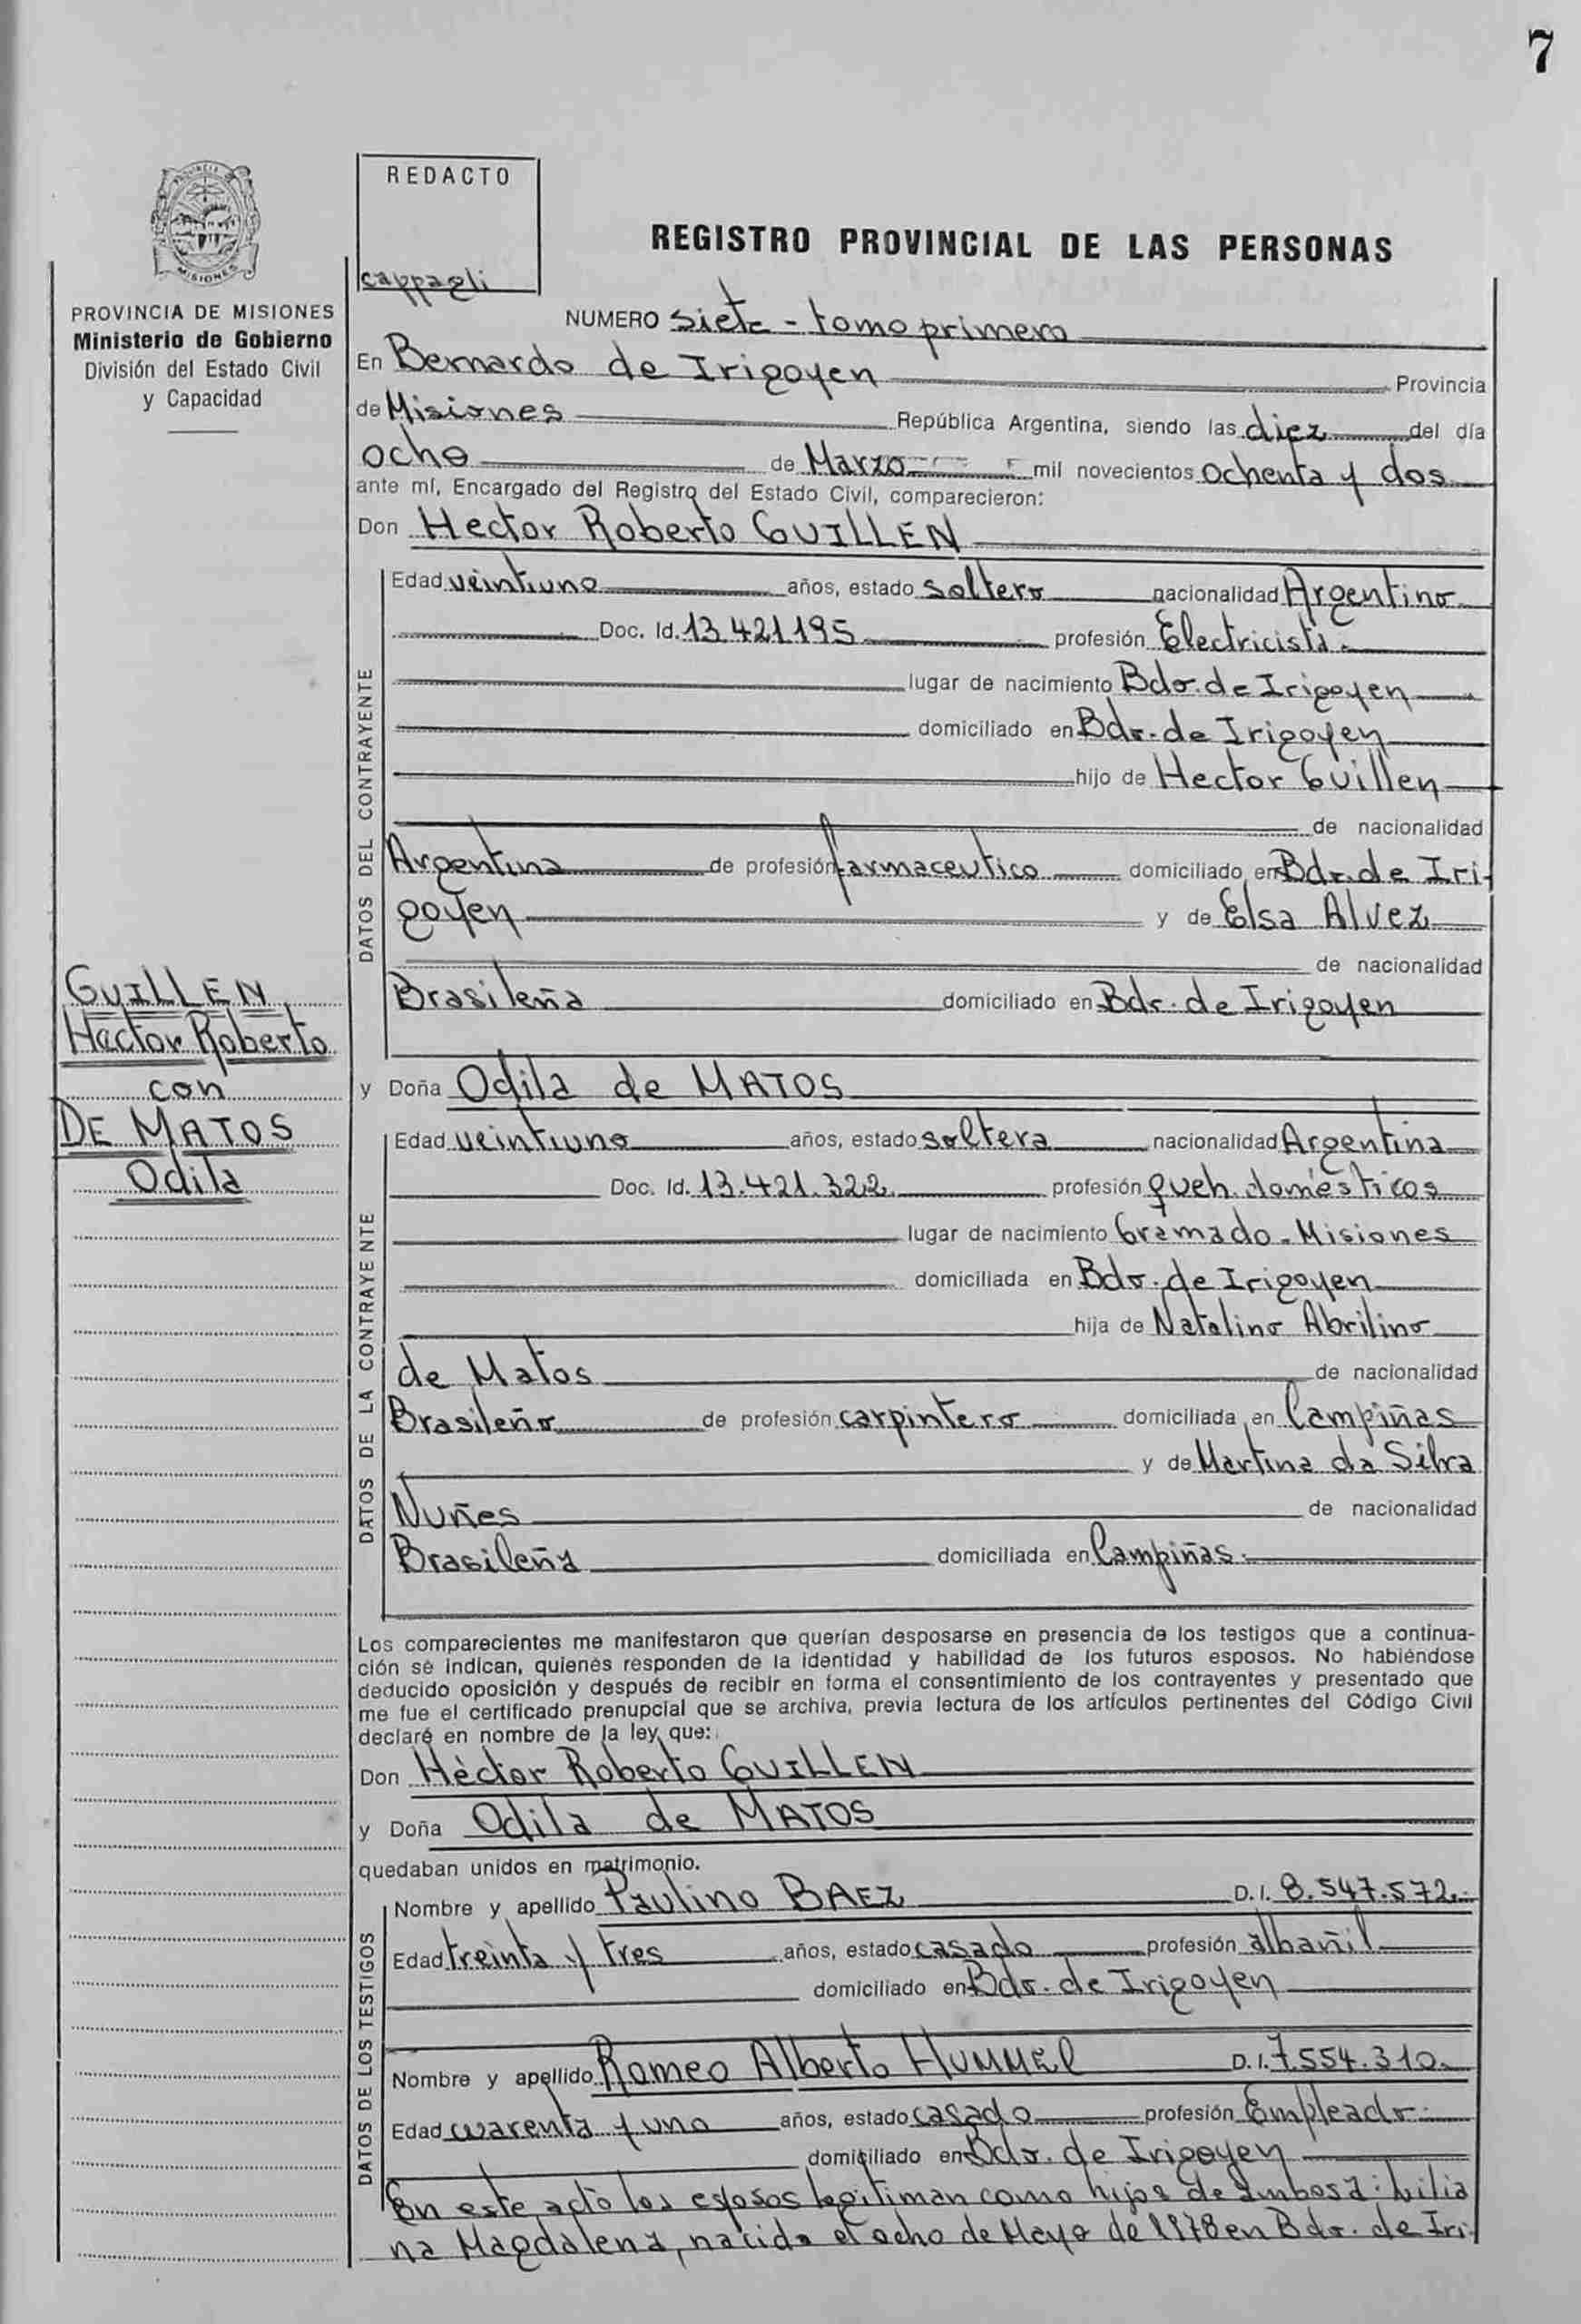 7
REDACTO
cappagli
REGISTRO PROVINCIAL DE LAS PERSONAS
MISIONES
PROVINCIA DE MISIONES
Ministerio de Gobierno
División del Estado Civil
y Capacidad
NUMERO siete - tomo primero
En Bernardo de Irigoyen Provincia
de Misiones República Argentina, siendo las diez del día
ocho de Marzo mil novecientos ochenta y dos
ante mí, Encargado del Registro del Estado Civil, comparecieron:
Don Hector Roberto GUILLEN
DATOS DEL CONTRAYENTE
Edad veintiuno años, estado soltero nacionalidad Argentino
Doc. Id. 13.421.195 profesión Electricista
lugar de nacimiento Bdo. de Irigoyen
domiciliado en Bdo. de Irigoyen
hijo de Hector Guillen
de nacionalidad
Argentina de profesión farmaceutico domiciliado en Bdo. de Iri-
goyen y de Elsa Alvez
de nacionalidad
Brasileña domiciliado en Bdo. de Irigoyen
GUILLEN
Hector Roberto
con
DE MATOS
Odila
y Doña Odila de MATOS
DATOS DE LA CONTRAYENTE
Edad veintiuno años, estado soltera nacionalidad Argentina
Doc. Id. 13.421.322 profesión queh. domésticos
lugar de nacimiento Gramado - Misiones
domiciliada en Bdo. de Irigoyen
hija de Natalino Abrilino
de Matos de nacionalidad
Brasileño de profesión carpintero domiciliada en Campiñas
y de Martina da Silva
Nuñes de nacionalidad
Brasileña domiciliada en Campiñas.
Los comparecientes me manifestaron que querían desposarse en presencia de los testigos que a continua-
ción se indican, quienes responden de la identidad y habilidad de los futuros esposos. No habiéndose
deducido oposición y después de recibir en forma el consentimiento de los contrayentes y presentado que
me fue el certificado prenupcial que se archiva, previa lectura de los artículos pertinentes del Código Civil
declaré en nombre de la ley, que:
Don Héctor Roberto GUILLEN
y Doña Odila de MATOS
quedaban unidos en matrimonio.
DATOS DE LOS TESTIGOS
Nombre y apellido Paulino BAEZ D.I. 8.547.572.-
Edad treinta y tres años, estado casado profesión albañil
domiciliado en Bdo. de Irigoyen
Nombre y apellido Romeo Alberto HUMMEL D.I. 7.554.310.
Edad cuarenta y uno años, estado casado profesión Empleado
domiciliado en Bdo. de Irigoyen
En este acto los esposos legitiman como hijos de ambos a: Lilia
na Magdalena, nacida el ocho de Mayo de 1978 en Bdo. de Iri-